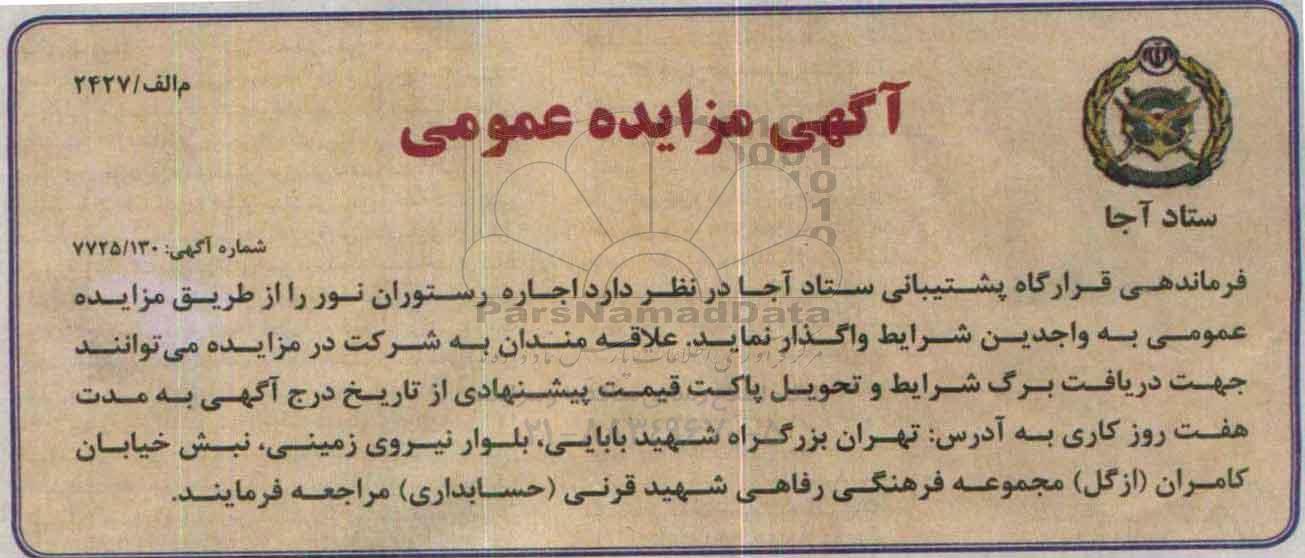 م‌الف/۲۴۲۷
آگهی مزایده عمومی
ستاد آجا
شماره آگهی: ۷۷۲۵/۱۳۰
فرماندهی قرارگاه پشتیبانی ستاد آجا در نظر دارد اجاره رستوران نور را از طریق مزایده
عمومی به واجدین شرایط واگذار نماید. علاقه مندان به شرکت در مزایده می‌توانند
جهت دریافت برگ شرایط و تحویل پاکت قیمت پیشنهادی از تاریخ درج آگهی به مدت
هفت روز کاری به آدرس: تهران بزرگراه شهید بابایی، بلوار نیروی زمینی، نبش خیابان
کامران (ازگل) مجموعه فرهنگی رفاهی شهید قرنی (حسابداری) مراجعه فرمایند.
ParsNamadData